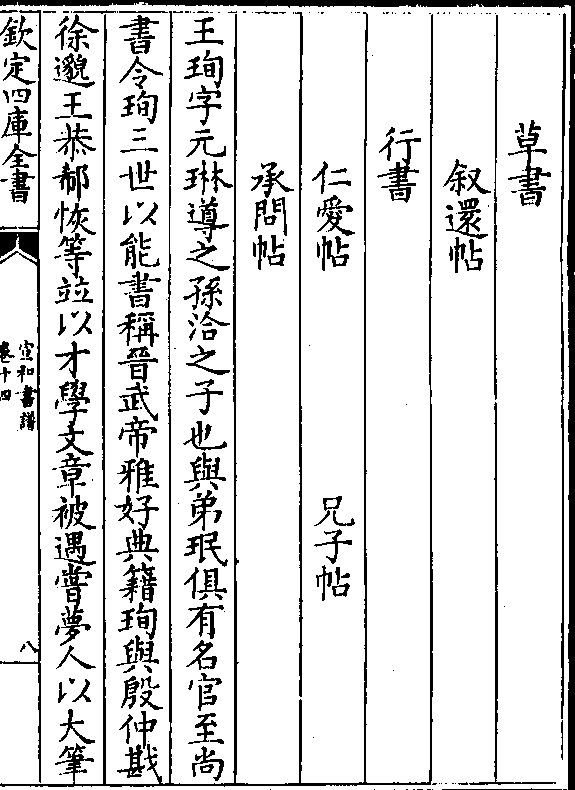 草書
叙還帖
行書
仁愛帖 兄子帖
承問帖
王珣字元琳導之孫洽之子也與弟珉俱有名官至尚
書令珣三世以能書稱晉武帝雅好典籍珣與殷仲戡
徐邈王恭郗恢等並以才學文章被遇嘗夢人以大筆
欽定四庫全書
宣和書譜
卷十四
八